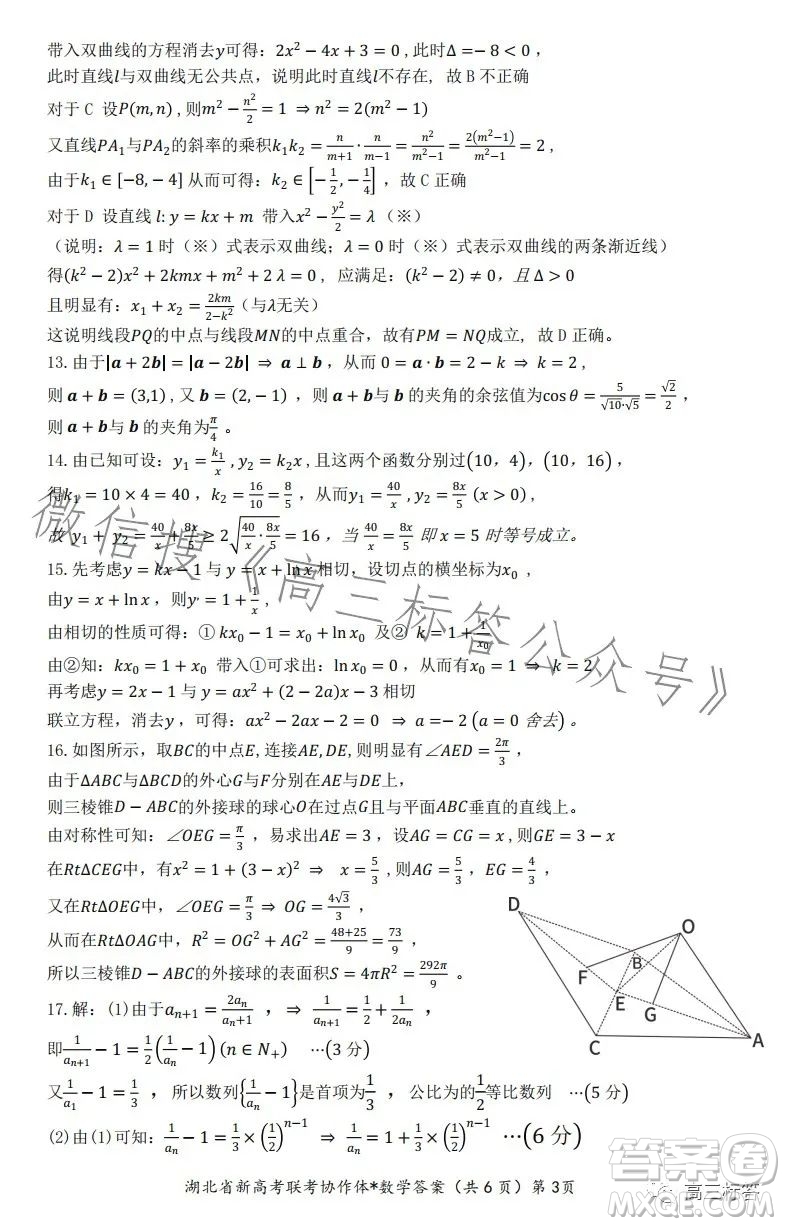 带入双曲线的方程消去y可得：2x²−4x+3=0，此时Δ=−8<0，
此时直线l与双曲线无公共点，说明此时直线l不存在, 故 B 不正确
对于 C 设P(m,n)，则m²−n²/2=1 ⇒ n²=2(m²−1)
又直线PA₁与PA₂的斜率的乘积k₁k₂=n/(m+1)·n/(m−1)=n²/(m²−1)=2(m²−1)/(m²−1)=2，
由于k₁∈[−8,−4] 从而可得：k₂∈[−1/2,−1/4]，故 C 正确
对于 D 设直线 l: y=kx+m 带入x²−y²/2=λ（※）
(说明：λ=1 时（※）式表示双曲线；λ=0 时（※）式表示双曲线的两条渐近线)
得(k²−2)x²+2kmx+m²+2λ=0，应满足：(k²−2)≠0，且 Δ>0
且明显有：x₁+x₂=2km/(2−k²)（与λ无关）
这说明线段PQ的中点与线段MN的中点重合，故有PM=NQ成立, 故 D 正确。
13. 由于|a+2b|=|a−2b| ⇒ a⊥b，从而 0=a·b=2−k ⇒ k=2，
则 a+b=(3,1)，又 b=(2,−1)，则 a+b 与 b 的夹角的余弦值为cosθ=5/(√10·√5)=√2/2，
则 a+b与 b 的夹角为π/4 。
14. 由已知可设：y₁=k₁/x，y₂=k₂x，且这两个函数分别过(10，4)，(10，16)，
得k₁=10×4=40，k₂=16/10=8/5，从而y₁=40/x，y₂=8x/5 (x>0)，
故 y₁+y₂=40/x+8x/5≥2√(40/x·8x/5)=16，当 40/x=8x/5 即 x=5 时等号成立。
15. 先考虑y=kx−1 与 y=x+lnx 相切，设切点的横坐标为x₀，
由y=x+lnx，则y′=1+1/x，
由相切的性质可得：① kx₀−1=x₀+lnx₀ 及② k=1+1/x₀
由②知：kx₀=1+x₀ 带入①可求出：lnx₀=0，从而有x₀=1 ⇒ k=2
再考虑y=2x−1 与 y=ax²+(2−2a)x−3 相切
联立方程，消去y，可得：ax²−2ax−2=0 ⇒ a=−2 (a=0 舍去) 。
16. 如图所示，取BC的中点E,连接AE,DE,则明显有∠AED=2π/3，
由于ΔABC与ΔBCD的外心G与F分别在AE与DE上，
则三棱锥D−ABC的外接球的球心O在过点G且与平面ABC垂直的直线上。
由对称性可知：∠OEG=π/3，易求出AE=3，设AG=CG=x，则EG=3−x
在RtΔCEG中，有x²=1+(3−x)² ⇒ x=5/3，则AG=5/3，EG=4/3，
又在RtΔOEG中，∠OEG=π/3 ⇒ OG=4√3/3，
从而在RtΔOAG中，R²=OG²+AG²=(48+25)/9=73/9，
所以三棱锥D−ABC的外接球的表面积S=4πR²=292π/9 。
D
O
B
F
E
G
C
A
17. 解：(1)由于aₙ₊₁=2aₙ/(aₙ+1)，⇒ 1/aₙ₊₁=1/2+1/(2aₙ)，
即1/aₙ₊₁−1=1/2(1/aₙ−1) (n∈N₊) ⋯(3 分)
又1/a₁−1=1/3，所以数列{1/aₙ−1}是首项为1/3，公比为的1/2等比数列 ⋯(5 分)
(2)由(1)可知：1/aₙ−1=1/3×(1/2)ⁿ⁻¹ ⇒ 1/aₙ=1+1/3×(1/2)ⁿ⁻¹ ⋯(6 分)
湖北省新高考联考协作体*数学答案（共 6 页）第 3页
微信搜《高三标答公众号》
答案圈
高三标答